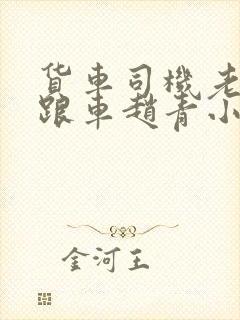 货车司機老
跟車趙青小
金河王